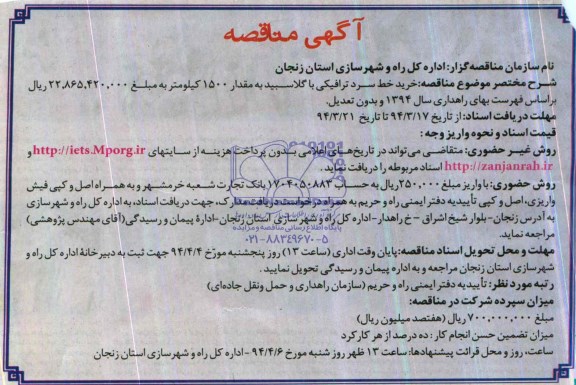 آگهی مناقصه
نام سازمان مناقصه گزار: اداره کل راه و شهرسازی استان زنجان
شرح مختصر موضوع مناقصه: خرید خط سرد ترافیکی با گلاسبید به مقدار ۱۵۰۰ کیلومتر به مبلغ ۲۲,۸۶۵,۴۲۰,۰۰۰ ریال
براساس فهرست بهای راهداری سال ۱۳۹۴ و بدون تعدیل.
مهلت دریافت اسناد: از تاریخ ۹۴/۳/۱۷ تا تاریخ ۹۴/۳/۲۱
قیمت اسناد و نحوه واریز وجه:
روش غیر حضوری: متقاضی می‌تواند در تاریخ‌های اعلامی بدون پرداخت هزینه از سایتهای http://iets.Mporg.ir و
http://zanjanrah.ir اسناد مربوطه را دریافت نماید.
روش حضوری: با واریز مبلغ ۲۵۰,۰۰۰ ریال به حساب ۱۷۰۴۰۵۰۸۸۳ بانک تجارت شعبه خرمشهر و به همراه اصل و کپی فیش
واریزی، اصل و کپی تأییدیه دفتر ایمنی راه و حریم به همراه درخواست دریافت مدارک، جهت دریافت اسناد، به اداره کل راه و شهرسازی
به آدرس زنجان- بلوار شیخ اشراق - خ راهدار- اداره کل راه و شهرسازی استان زنجان- ادارهٔ پیمان و رسیدگی (آقای مهندس پژوهشی)
مراجعه نماید.
پایگاه اطلاع رسانی مناقصه و مزایده
۰۲۱-۸۸۳۴۹۶۷۰-۵
مهلت و محل تحویل اسناد مناقصه: پایان وقت اداری (ساعت ۱۳) روز پنجشنبه مورخ ۹۴/۴/۴ جهت ثبت به دبیرخانهٔ اداره کل راه و
شهرسازی استان زنجان مراجعه و به اداره پیمان و رسیدگی تحویل نمایید.
رتبه مورد نظر: تأییدیه دفتر ایمنی راه و حریم (سازمان راهداری و حمل ونقل جاده‌ای)
میزان سپرده شرکت در مناقصه:
مبلغ ۷۰۰,۰۰۰,۰۰۰ ریال (هفتصد میلیون ریال)
میزان تضمین حسن انجام کار: ده درصد از هر کارکرد
ساعت، روز و محل قرائت پیشنهادها: ساعت ۱۳ ظهر روز شنبه مورخ ۹۴/۴/۶ - اداره کل راه و شهرسازی استان زنجان